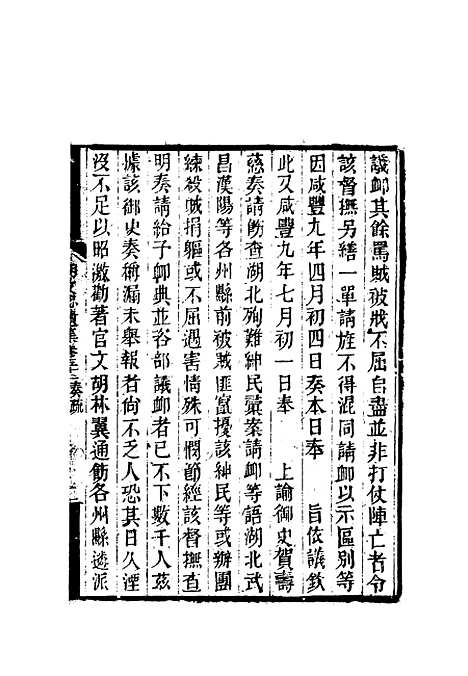 議卹其餘罵賊被戕不屈自盡並非打仗陣亡者令
該督撫另繕一單請旌不得混同請卹以示區別等
因咸豐九年四月初四日奏本日奉　旨依議欽
此又咸豐九年七月初一日奉　上諭御史賀壽
慈奏請飭查湖北殉難紳民彙案請卹等語湖北武
昌漢陽等各州縣前被賊匪竄擾該紳民等或辦團
練殺賊捐軀或不屈遇害情殊可憫節經該督撫查
明奏請給予卹典並各部議卹者已不下數千人茲
據該御史奏稱漏未舉報者尚不乏人恐其日久湮
沒不足以昭激勸著官文胡林翼通飭各州縣遴派
奏疏